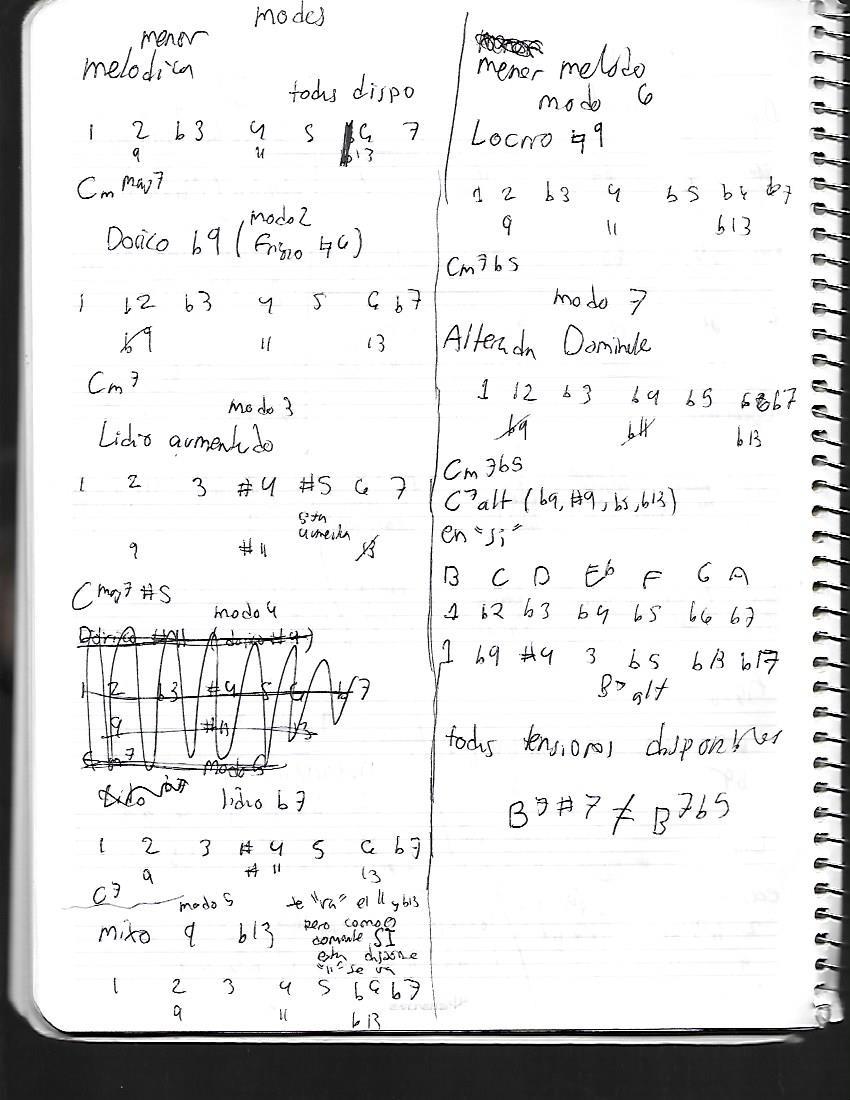 modes
menor
melodica
todas dispo
1 2 b3 4 5 6 7
9 11 b13
Cm Maj7
modo 2
Dorico b9 (Frigio ♮6)
1 b2 b3 4 5 6 b7
b9 11 13
Cm7
modo 3
Lidio aumentado
1 2 3 #4 #5 6 7
5ta
aumenta
9 #11 13
Cmaj7 #5
modo 4
1 2 b3 #4 5 6 b7
9 #11 13
Modo 5
lidio b7
1 2 3 #4 5 6 b7
9 #11 13
C7
modo 5
te "va" el 11 y b13
Mixo 9 b13
pero como
SI
esta
"11" se va
1 2 3 4 5 b6 b7
9 11 b13
menor melodo
modo 6
Locrio ♮9
1 2 b3 4 b5 b6 b7
9 11 b13
Cm7b5
modo 7
Alterada Dominante
1 b2 b3 b4 b5 b6 b7
b9 b11 b13
Cm7b5
C7alt (b9, #9, b5, b13)
en "si"
B C D Eb F G A
1 b2 b3 b4 b5 b6 b7
1 b9 #9 3 b5 b13 b7
B7 alt
todas tensiones disponibles
B7#7 ≠ B7b5